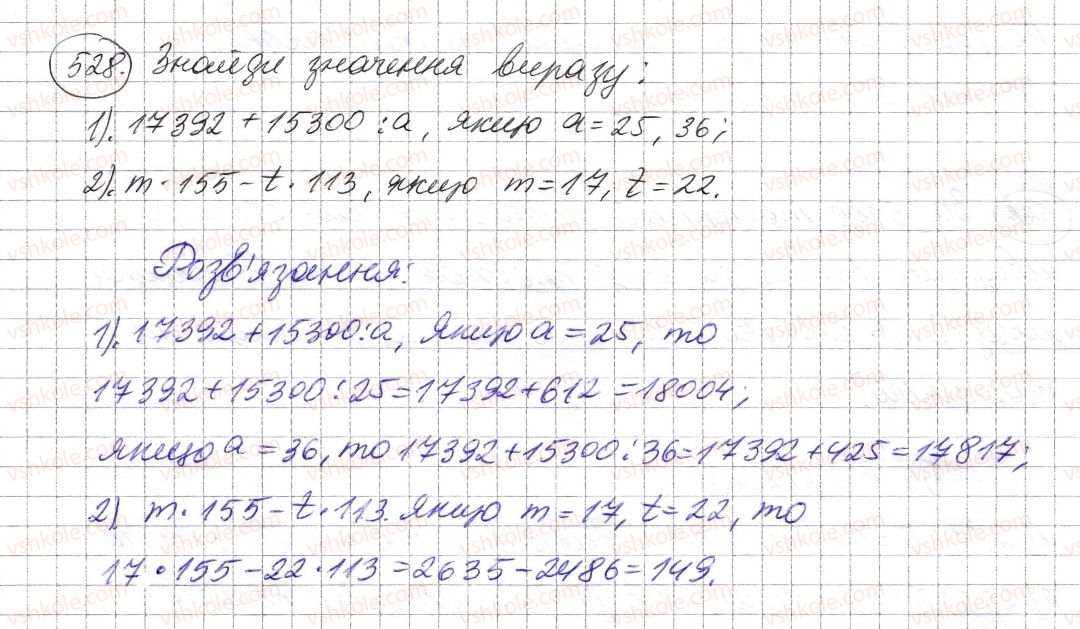 528. Знайди значення виразу:
1). 17392 + 15300 : a, якщо a = 25, 36;
2). m · 155 - t · 113, якщо m = 17, t = 22.
Розв'язання:
1). 17392 + 15300 : a, Якщо a = 25, то
17392 + 15300 : 25 = 17392 + 612 = 18004;
якщо a = 36, то 17392 + 15300 : 36 = 17392 + 425 = 17817;
2). m · 155 - t · 113. Якщо m = 17, t = 22, то
17 · 155 - 22 · 113 = 2635 - 2486 = 149.